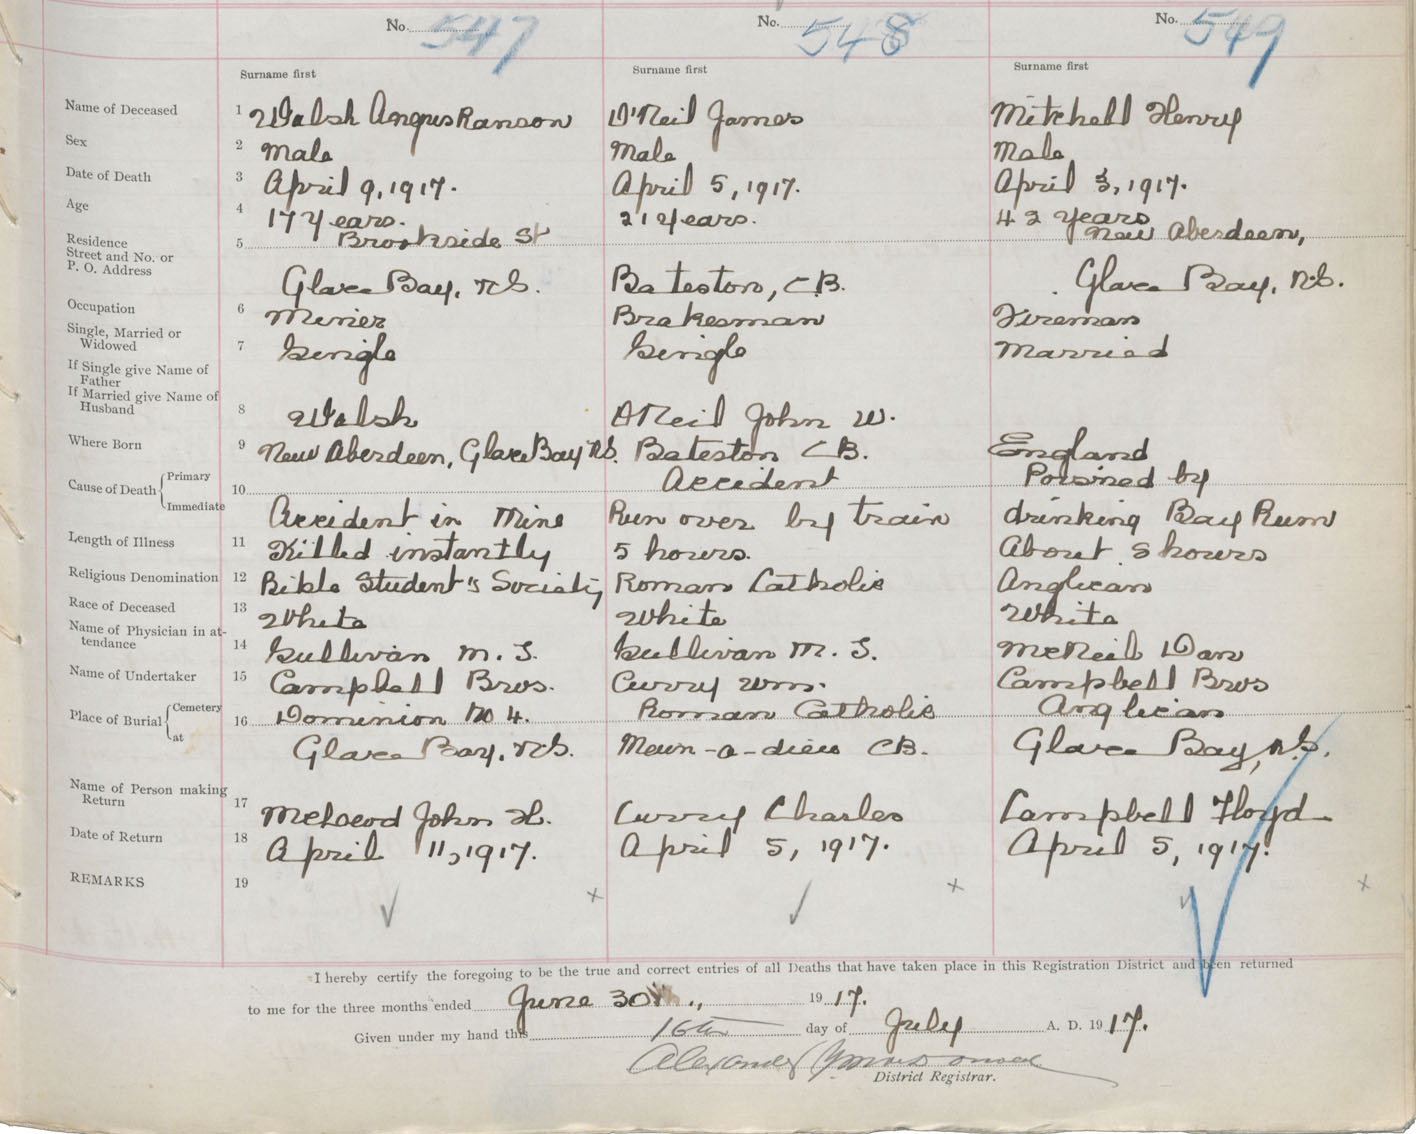 No. 547 No. 548 No. 549
Surname first Surname first Surname first
Name of Deceased 1 Walsh Angus Ranson O'Neil James Mitchell Henry
Sex 2 Male Male Male
Date of Death 3 April 9, 1917. April 5, 1917. April 3, 1917.
Age 4 17 years. 21 years. 42 years
Residence 5 Brookside St New Aberdeen,
Street and No. or
P. O. Address Glace Bay, N.S. Bateston, C.B. Glace Bay, N.S.
Occupation 6 Miner Brakesman Fireman
Single, Married or
Widowed 7 Single Single Married
If Single give Name of
Father
If Married give Name of
Husband 8 Walsh O'Neil John W.
Where Born 9 New Aberdeen, Glace Bay N.S. Bateston C.B. England
Cause of Death Primary 10 Accident Poisined by
Immediate Accident in Mine Run over by train drinking Bay Rum
Length of Illness 11 Killed instantly 5 hours. About 5 hours
Religious Denomination 12 Bible Student's Society Roman Catholic Anglican
Race of Deceased 13 White White White
Name of Physician in at-
tendance 14 Sullivan M. S. Sullivan M. S. McNeil Dan
Name of Undertaker 15 Campbell Bros. Curry Wm. Campbell Bros
Place of Burial Cemetery 16 Dominion No 4. Roman Catholic Anglican
at Glace Bay, N.S. Meun-a-dieu C.B. Glace Bay, N.S.
Name of Person making
Return 17 McLeod John H. Curry Charles Campbell Floyd
Date of Return 18 April 11, 1917. April 5, 1917. April 5, 1917.
REMARKS 19
I hereby certify the foregoing to be the true and correct entries of all Deaths that have taken place in this Registration District and been returned
to me for the three months ended June 30th 1917.
Given under my hand this 16th day of July A. D. 1917.
Alexander
District Registrar.